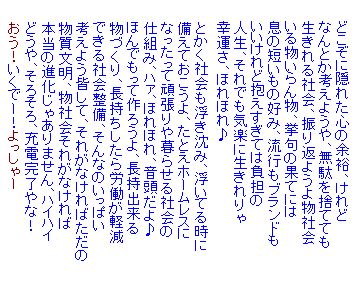 どこぞに隠れた心の余裕、けれど
なんとか考えようや、無駄を捨てても
生きれる社会、振り返ようよ物社会
いる物いらん物、挙句の果てには
息の短いもの好み、流行もブランドも
いいけれど抱えすぎては負担の
人生、それでも気楽に生きれりゃ
幸運さ、ほれほれ♪
とかく社会も浮き沈み、浮いてる時に
備えておこうよ、たとえホームレスに
なったって頑張りゃ暮らせる社会の
仕組み、ハァ、ほれほれ、音頭だよ♪
ほんでもって作ろうよ、長持出来る
物づくり、長持ちしたら労働が軽減
できる社会整備、そんなのいっぱい
考えよう皆して、それがなければただの
物質文明、物社会それがなければ
本当の進化じゃありません、ハイハイ
どうや、そろそろ、充電完了やな！
おうー いくでー！よっしゃー